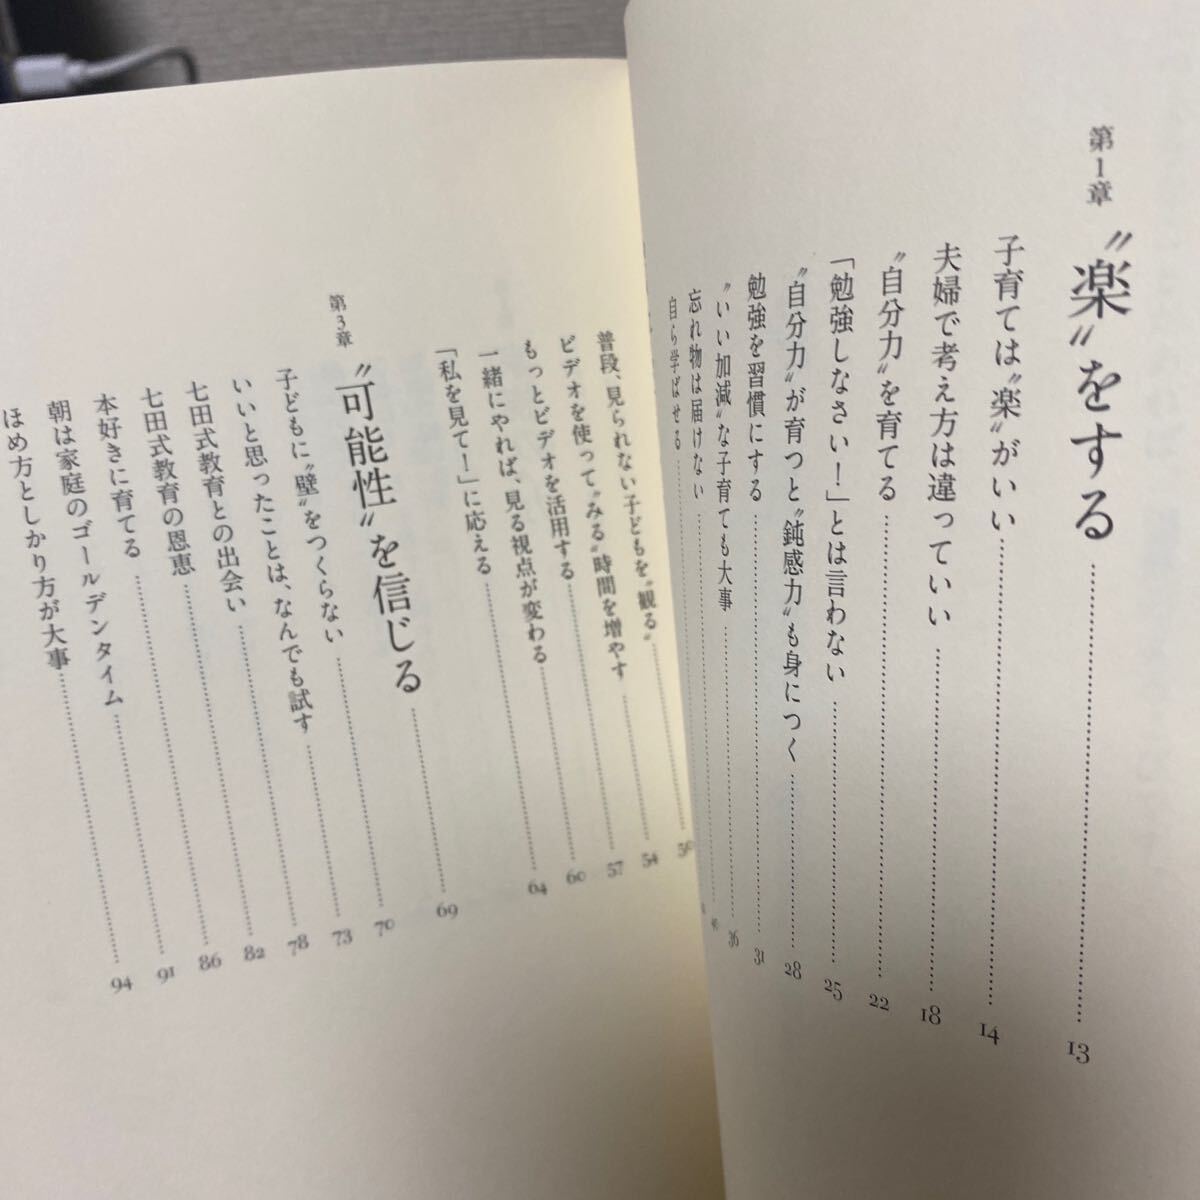 第1章 〝楽〟をする 13
子育ては〝楽〟がいい 14
夫婦で考え方は違っていい 18
〝自分力〟を育てる 22
「勉強しなさい！」とは言わない 25
〝自分力〟が育つと〝鈍感力〟も身につく 28
勉強を習慣にする 31
〝いい加減〟な子育ても大事 36
忘れ物は届けない
自ら学ばせる
普段、見られない子どもを〝観る〟 50
ビデオを使って〝みる〟時間を増やす 54
もっとビデオを活用する 57
一緒にやれば、見る視点が変わる 60
「私を見て！」に応える 64
第3章 〝可能性〟を信じる 69
子どもに〝壁〟をつくらない 70
いいと思ったことは、なんでも試す 73
七田式教育との出会い 78
七田式教育の恩恵 82
本好きに育てる 86
朝は家庭のゴールデンタイム 91
ほめ方としかり方が大事 94